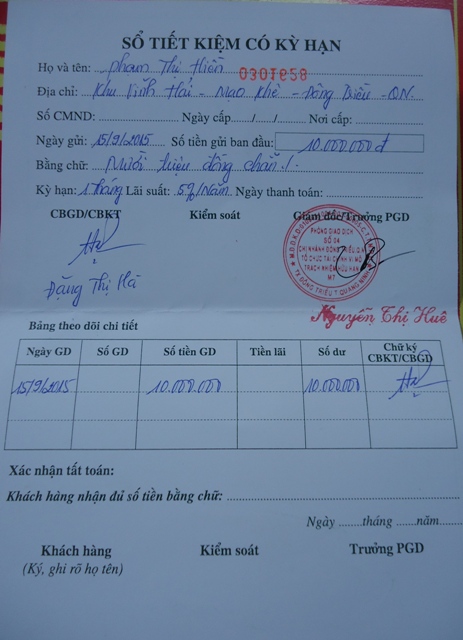 SỔ TIẾT KIỆM CÓ KỲ HẠN
Họ và tên: Phạm Thị Hiền 0301958
Địa chỉ: Khu Vĩnh Hải - Mạo Khê - Đông Triều - QN.
Số CMND: Ngày cấp / / Nơi cấp:
Ngày gửi: 15/9/2015 Số tiền gửi ban đầu: 10.000.000đ
Bằng chữ: Mười triệu đồng chẵn./.
Kỳ hạn: 1 tháng Lãi suất: 5%/Năm Ngày thanh toán:
CBGD/CBKT Kiểm soát Giám đốc/Trưởng PGD
PHÒNG GIAO DỊCH
SỐ 04
CHI NHÁNH ĐÔNG TRIỀU Q.N
TỔ CHỨC TÀI CHÍNH VI MÔ
TRÁCH NHIỆM HỮU HẠN
M7
TX ĐÔNG TRIỀU T. QUẢNG NINH
Đặng Thị Hà Nguyễn Thị Huê
Bảng theo dõi chi tiết
Ngày GD Số GD Số tiền GD Tiền lãi Số dư Chữ ký CBKT/CBGD
15/9/2015 10.000.000 10.000.000
Xác nhận tất toán:
Khách hàng nhận đủ số tiền bằng chữ:
Ngày ........tháng ......năm......
Khách hàng Kiểm soát Trưởng PGD
(Ký, ghi rõ họ tên)